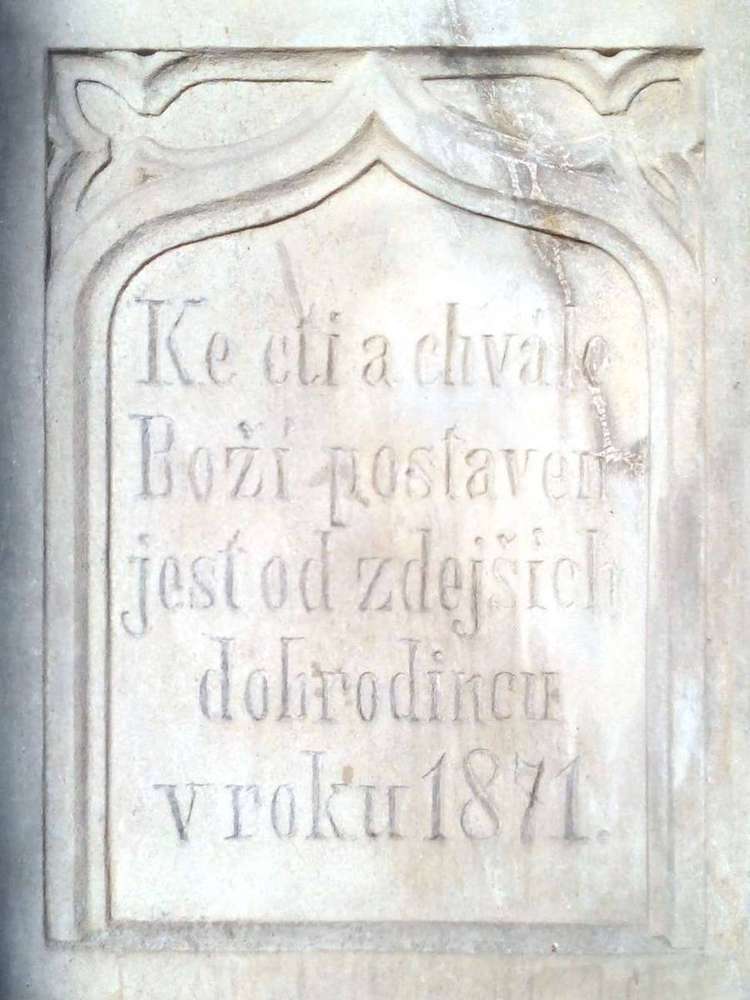 Ke cti a chvále
Boží postaven
jest od zdejších
dobrodincu
v roku 1871.